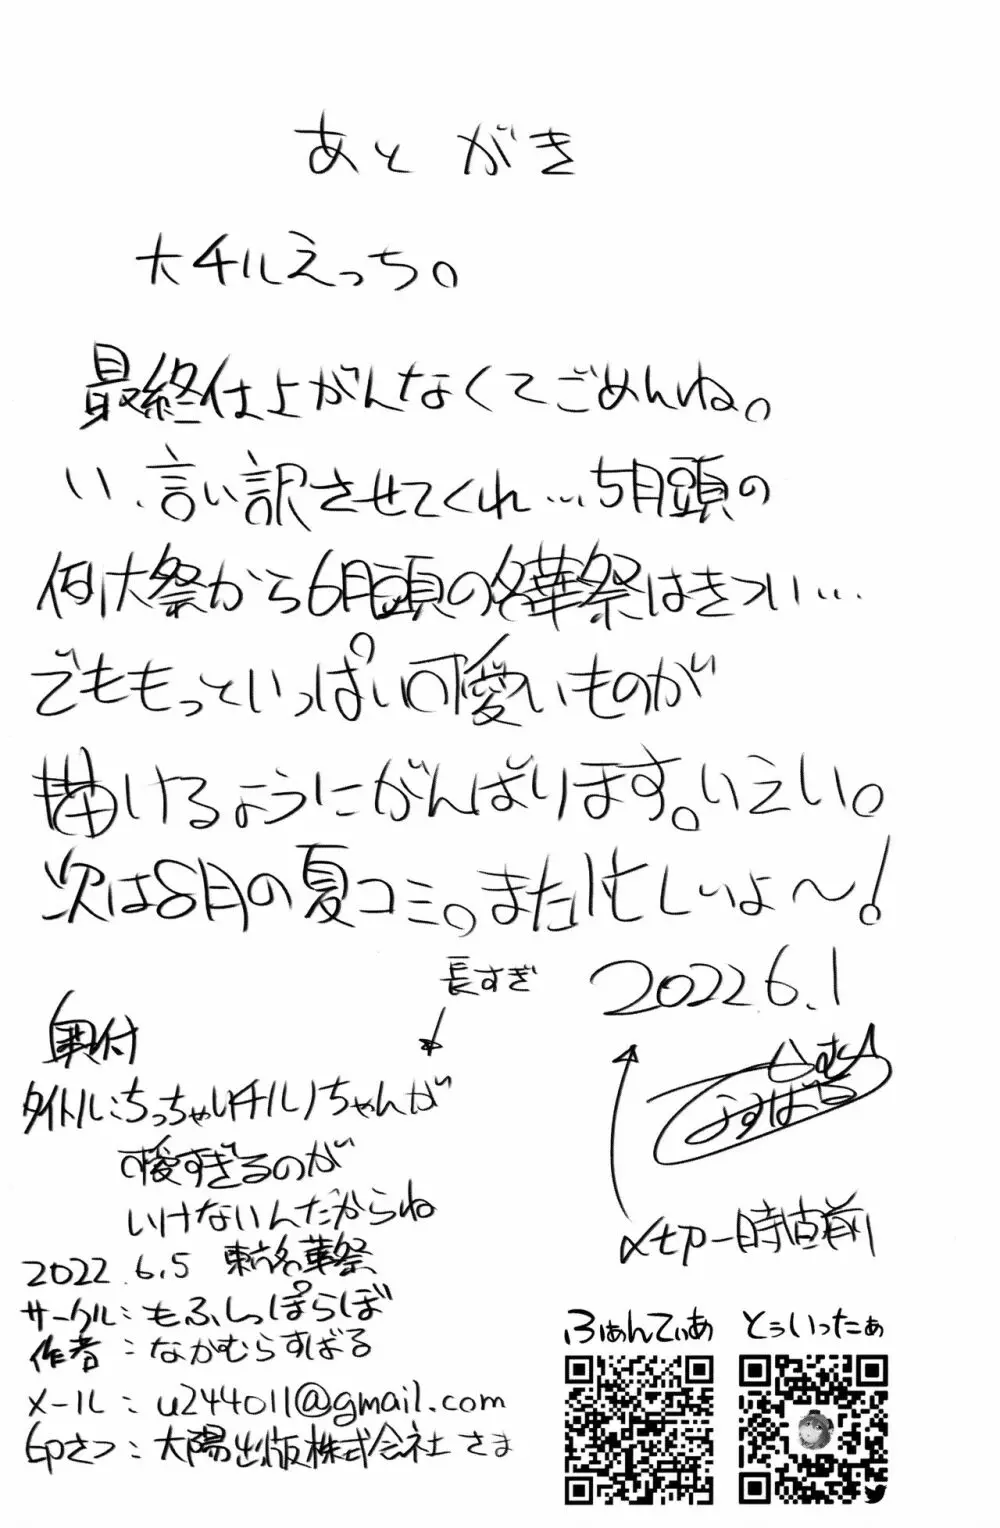 あとがき
大チルえっち。
最終仕上がんなくてごめんね。
い、言い訳させてくれ…5月頭の
例大祭から6月頭の名華祭はきつい…
でももっといっぱい可愛いものが
描けるようにがんばります。いえい。
次は8月の夏コミ。また忙しいよ〜!
2022 6.1
なかむら
すばる
〆切一時直前
長すぎ
奥付
タイトル:ちっちゃいチルノちゃんが
可愛すぎるのが
いけないんだからね
2022.6.5 東方名華祭
サークル:もふしっぽらぼ
作者:なかむらすばる
メール:u244011@gmail.com
印さつ:大陽出版株式会社さま
ふぁんてぃあ
とぅいったぁ